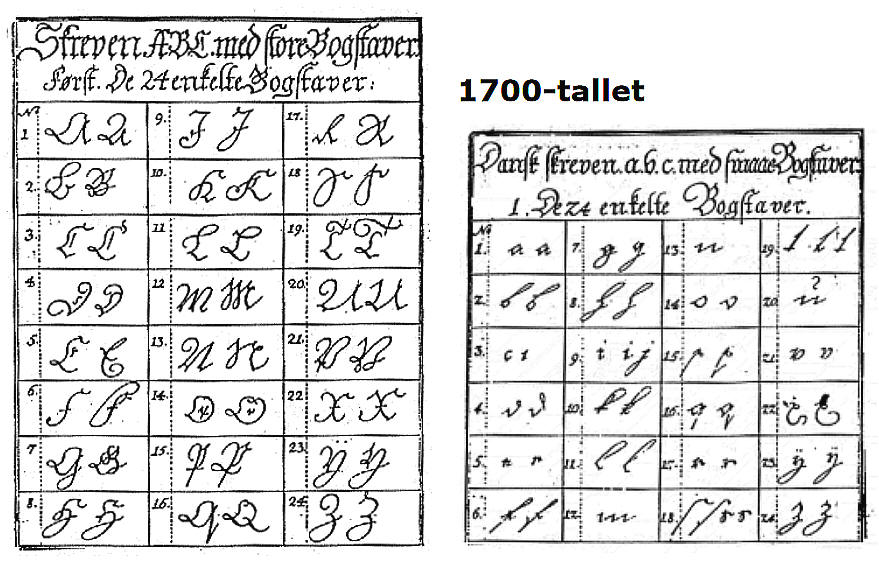 Skreven. ABC. med store Bogstaver.
Først. De 24 enkelte Bogstaver:
No 1 A A 9. J J 17. R R
2. B B 10. K K 18 S S
3. C C 11 L L 19. T T
4 D D 12 M M 20. U U
5. E E 13. N N 21. V V
6. F F 14. O O 22 X X
7 G G 15. P P 23. Y Y
8. H H 16. Q Q 24. Z Z
1700-tallet
Dansk skreven. a.b.c. med smaae Bogstaver.
1. De 24 enkelte Bogstaver.
No 1. a a 7. g g 13. n 19. t t t
2. b b 8. h h 14 o o 20. u
3. c c 9. i i j 15. p p 21. v v
4. d d 10. k k 16. q q 22. x x
5. e e 11. l l 17. r r 23. ÿ ÿ
6. f f 12. m 18. ſ ſ s s 24. z z